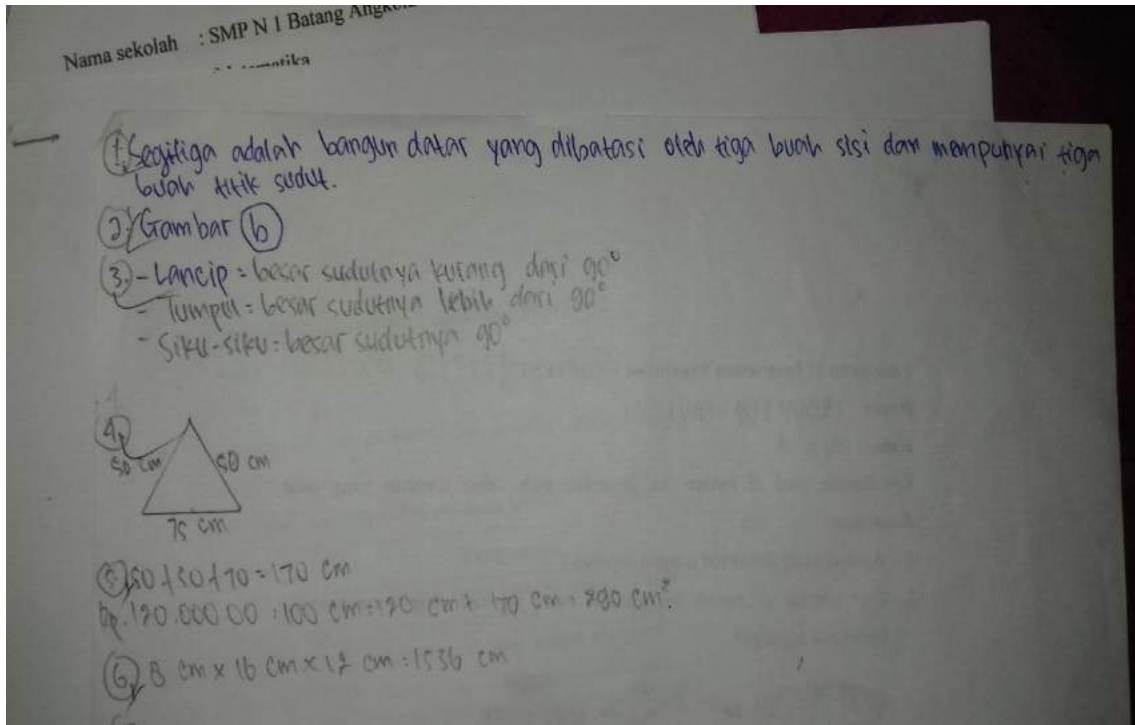 Nama sekolah : SMP N 1 Batang
1. Segitiga adalah bangun datar yang dibatasi oleh tiga buah sisi dan mempunyai tiga
buah titik sudut.
2. Gambar b
3. - Lancip = besar sudutnya kurang dari 90°
- Tumpul = besar sudutnya lebih dari 90°
- Siku-siku = besar sudutnya 90°
4.
50 cm
50 cm
75 cm
5. 50 + 50 + 70 = 170 cm
Rp. 120.000 00 : 100 cm = 120 cm + 170 cm = 290 cm²
6. 8 cm x 16 cm x 12 cm = 1536 cm